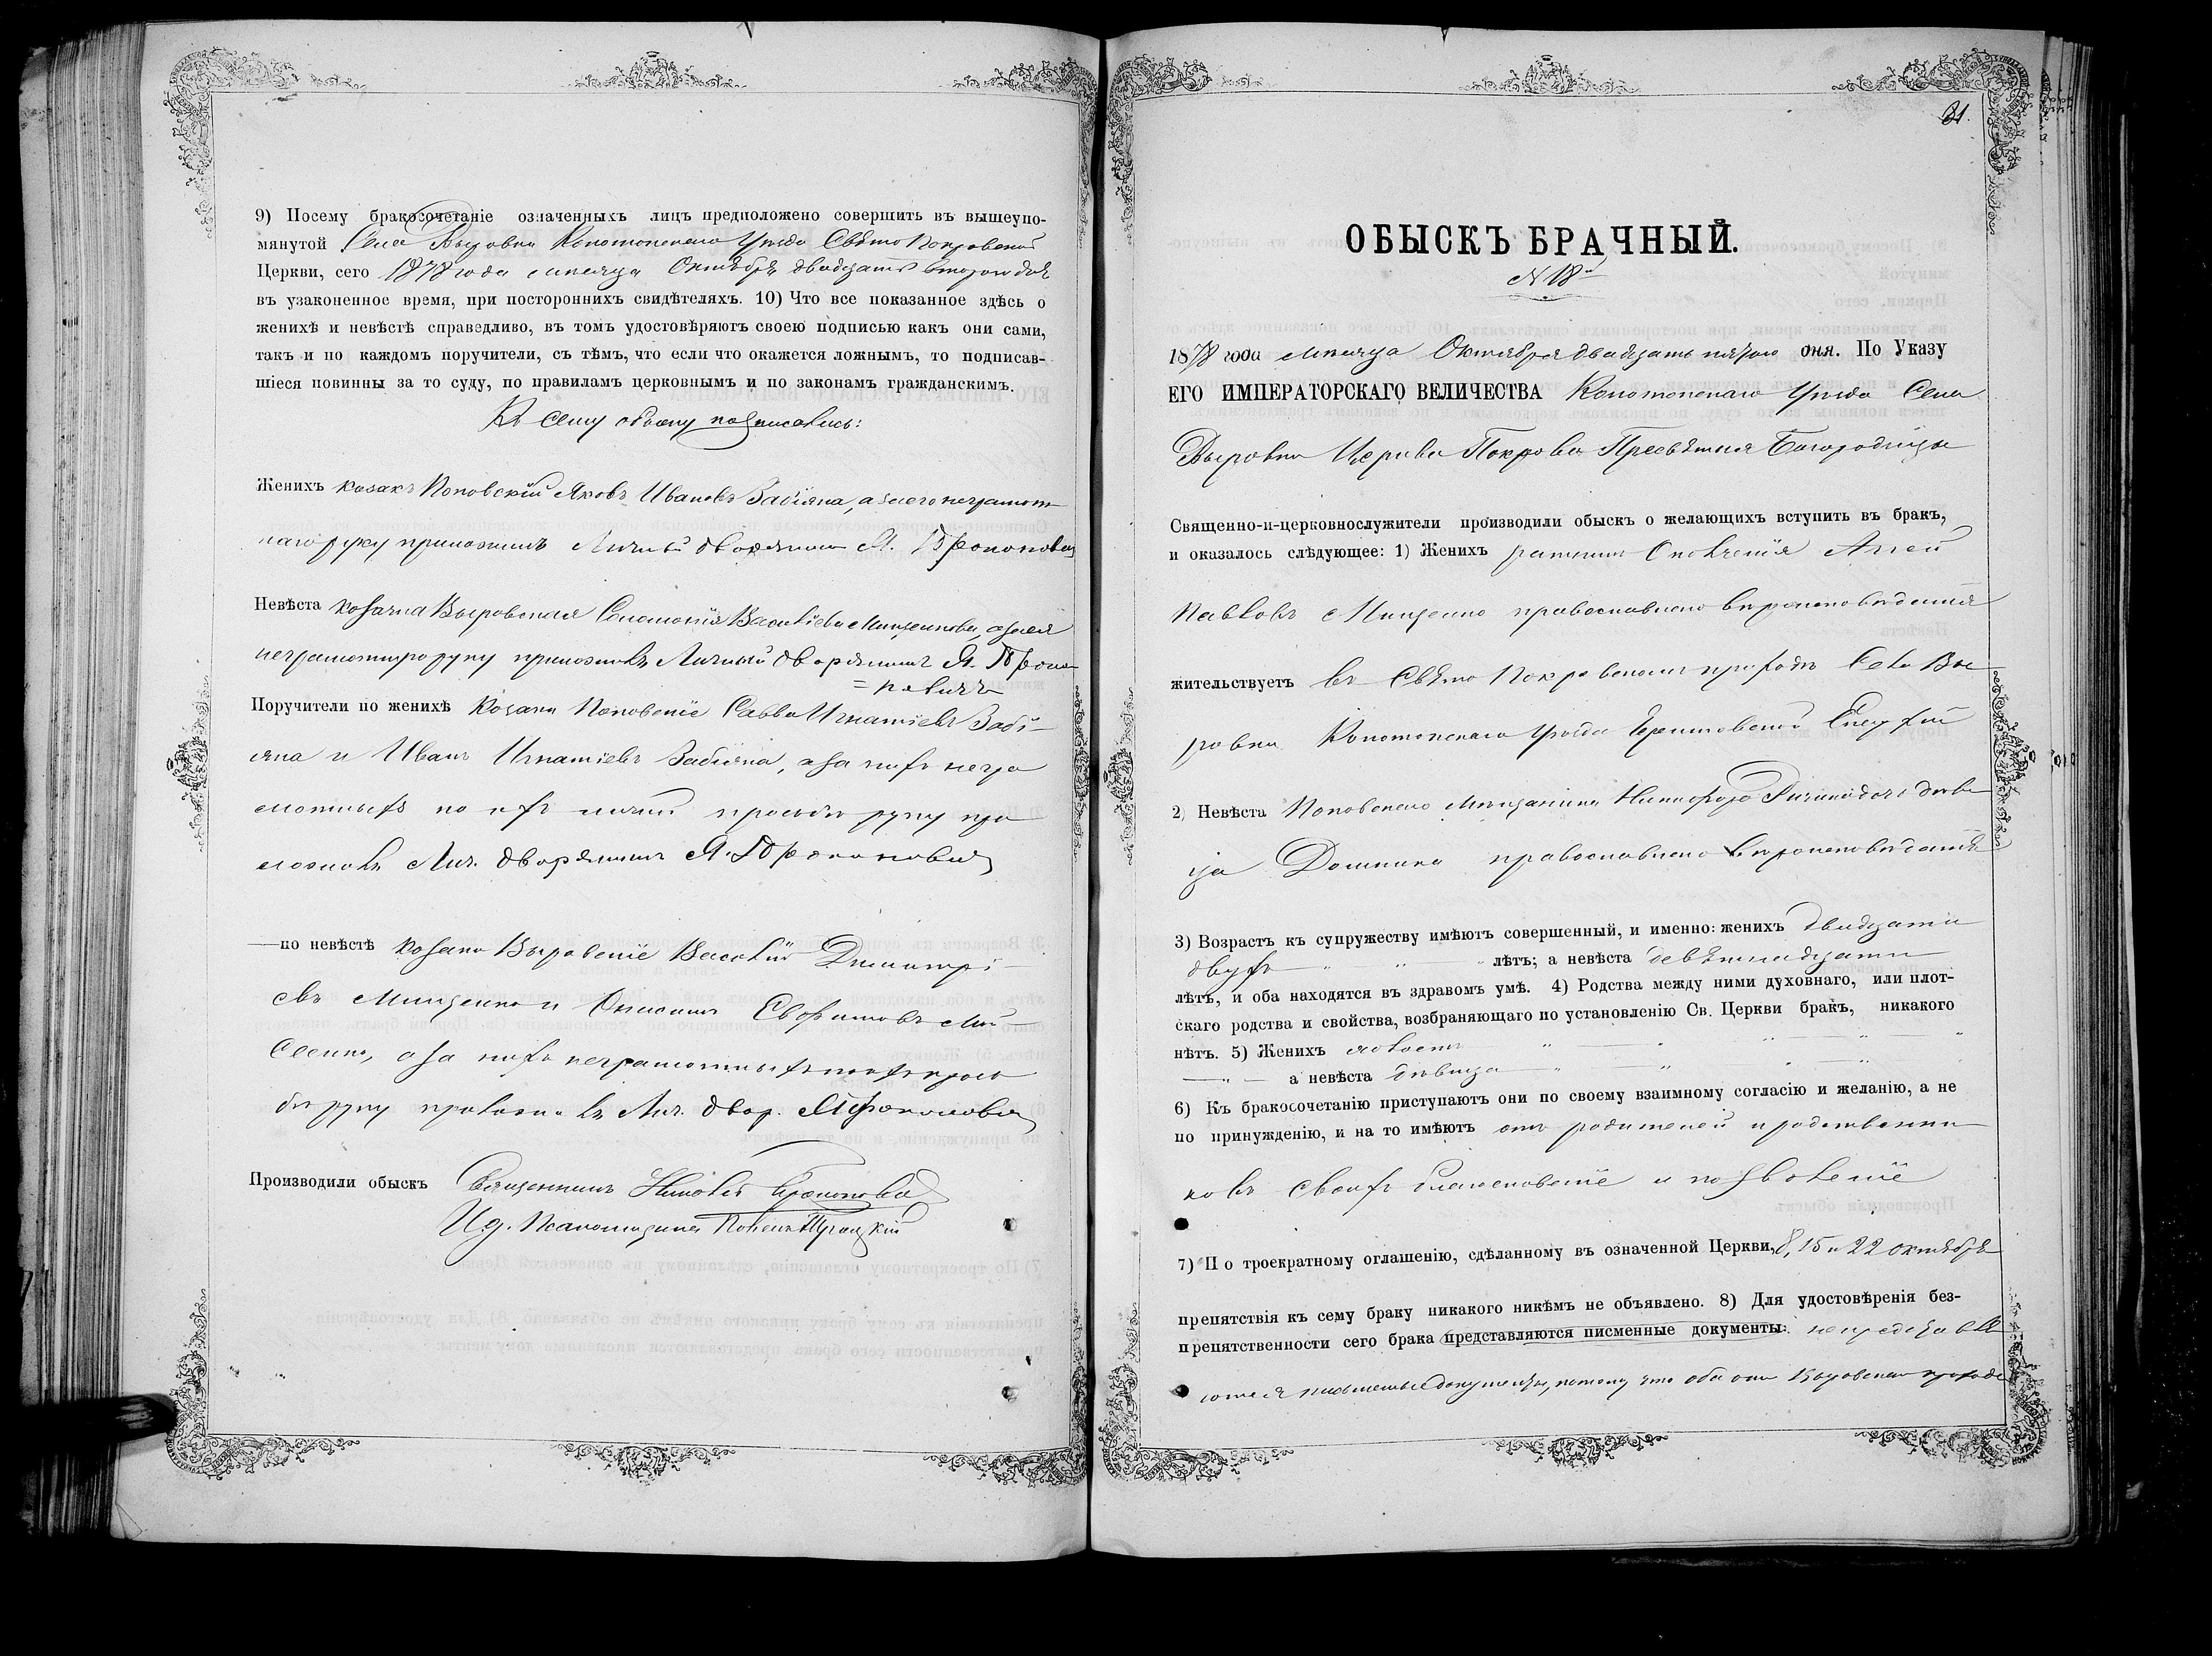 9) Посему бракосочетаніе означенныхъ лицъ предположено совершить въ вышеупо-
мянутой Села Выровки Конотопскаго Уѣзда Свято Покровской
Церкви, сего 1878 года мѣсяца Октября двадцать втораго дня
въ узаконенное время, при постороннихъ свидѣтеляхъ. 10) Что все показанное здѣсь о
женихѣ и невѣстѣ справедливо, въ томъ удостовѣряютъ своею подписью какъ они сами,
такъ и по каждомъ поручители, съ тѣмъ, что если что окажется ложнымъ, то подписав-
шіеся повинны за то суду, по правиламъ церковнымъ и по законамъ гражданскимъ.
Къ сему обыску подписались:
Женихъ козакъ Поповскій Яковъ Ивановъ Забіяка, а за его неграмот
наго руку приложилъ Личный дворянинъ Я.
Невѣста козачка Выровская Соломонія Василіева Мищенкова, а за ея
неграмотную руку приложилъ Личный дворянинъ Я.
Поручители по женихѣ Козаки Поповскіе Савва Игнатіевъ Забі-
яка и Иванъ Игнатіевъ Забіяка, а за нихъ негра
мотныхъ по ихъ личной просьбѣ руку при
ложилъ Лич. дворянинъ Я.
—по невѣстѣ козаки Выровскіе Василій Димитрі-
евъ Мищенко и Онисимъ Евфимовъ Мой-
сеенко, а за нихъ неграмотныхъ по ихъ прось
бѣ руку приложилъ Лич. двор.
Производили обыскъ Священникъ Николай
И. д. Псаломщика Троицкій
31.
ОБЫСКЪ БРАЧНЫЙ.
№ 18й
1878 года мѣсяца Октября двадцать пятаго дня. По Указу
ЕГО ИМПЕРАТОРСКАГО ВЕЛИЧЕСТВА Конотопскаго Уѣзда Села
Выровки Церкви Покрова Пресвятыя Богородицы
Священно-и-церковнослужители производили обыскъ о желающихъ вступить въ бракъ,
и оказалось слѣдующее: 1) Женихъ ратникъ Ополченія Аггей
Павловъ Мищенко православнаго вѣроисповѣданія
жительствуетъ въ Свято Покровскомъ приходѣ Села Вы-
ровки Конотопскаго уѣзда Черниговской Епархіи
2) Невѣста Поповскаго Мѣщанина Никифора дочь дѣви
ца Домникія православнаго вѣроисповѣданія
3) Возрастъ къ супружеству имѣютъ совершенный, и именно: женихъ двадцати
двухъ — " — " — " лѣтъ; а невѣста девятнадцати
лѣтъ, и оба находятся въ здравомъ умѣ. 4) Родства между ними духовнаго, или плот-
скаго родства и свойства, возбраняющаго по установленію Св. Церкви бракъ, никакого
нѣтъ. 5) Женихъ холостъ — " — " — " — "
— " — а невѣста дѣвица — " — " — " — "
6) Къ бракосочетанію приступаютъ они по своему взаимному согласію и желанію, а не
по принужденію, и на то имѣютъ отъ родителей и родственни
ковъ своихъ благословеніе и позволеніе
7) По троекратному оглашенію, сдѣланному въ означенной Церкви, 8, 15 и 22 октября
препятствія къ сему браку никакого никѣмъ не объявлено. 8) Для удостовѣренія без-
препятственности сего брака представляются писменные документы: непредставля
ются письменные документы, потому что оба они Выровскаго прихода